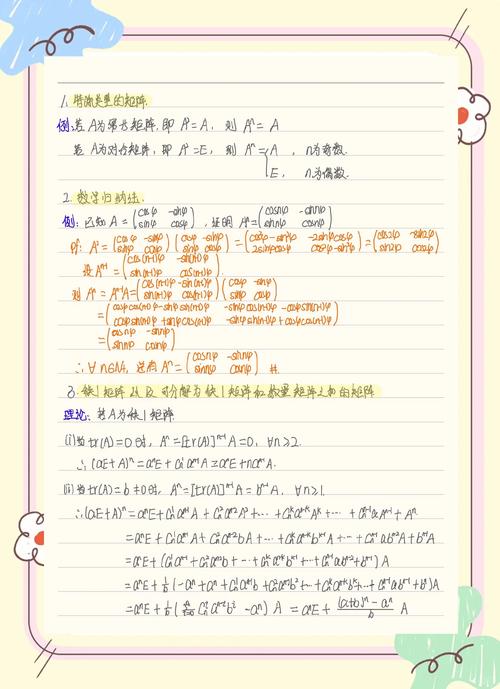 1. 特殊类型的矩阵.
例: 若A为幂等矩阵, 即 A²=A, 则 Aⁿ=A
若 A为对合矩阵, 即 A²=E, 则 Aⁿ={A, n为奇数.
E, n为偶数.
2. 数学归纳法.
例: 已知 A=(cosφ -sinφ; sinφ cosφ), 证明 Aⁿ=(cosnφ -sinnφ; sinnφ cosnφ)
Pf: A²=(cosφ -sinφ; sinφ cosφ)(cosφ -sinφ; sinφ cosφ)=(cos²φ-sin²φ -2sinφcosφ; 2sinφcosφ cos²φ-sin²φ)=(cos2φ -sin2φ; sin2φ cos2φ)
设 Aⁿ⁻¹=(cos(n-1)φ -sin(n-1)φ; sin(n-1)φ cos(n-1)φ)
则 Aⁿ=Aⁿ⁻¹A=(cos(n-1)φ -sin(n-1)φ; sin(n-1)φ cos(n-1)φ)(cosφ -sinφ; sinφ cosφ)
=(cosφcos(n-1)φ-sinφsin(n-1)φ -sinφcos(n-1)φ-cosφsin(n-1)φ; cosφsin(n-1)φ+sinφcos(n-1)φ -sinφsin(n-1)φ+cosφcos(n-1)φ)
=(cosnφ -sinnφ; sinnφ cosnφ)
∴∀n∈N, 总有 Aⁿ=(cosnφ -sinnφ; sinnφ cosnφ) #.
3. 秩1矩阵以及可分解为秩1矩阵和数量矩阵之和的矩阵
理论: 若A为秩1矩阵
(i)当tr(A)=0时, Aⁿ=[tr(A)]ⁿ⁻¹A=0, ∀n≥2.
∴(aE+A)ⁿ=aⁿE+Cₙ¹aⁿ⁻¹A=aⁿE+naⁿ⁻¹A.
(ii)当tr(A)=b≠0时, Aⁿ=[tr(A)]ⁿ⁻¹A=bⁿ⁻¹A, ∀n≥1.
∴(aE+A)ⁿ=aⁿE+Cₙ¹aⁿ⁻¹A+Cₙ²aⁿ⁻²A²+…+Cₙᵏaⁿ⁻ᵏAᵏ+…+Cₙⁿ⁻¹aAⁿ⁻¹+Aⁿ
=aⁿE+Cₙ¹aⁿ⁻¹A+Cₙ²aⁿ⁻²bA+…+Cₙᵏaⁿ⁻ᵏbᵏ⁻¹A+…+Cₙⁿ⁻¹abⁿ⁻²A+bⁿ⁻¹A
=aⁿE+(Cₙ¹aⁿ⁻¹+Cₙ²aⁿ⁻²b+…+Cₙᵏaⁿ⁻ᵏbᵏ⁻¹+…+Cₙⁿ⁻¹abⁿ⁻²+bⁿ⁻¹)A
=aⁿE+1/b(-aⁿ+aⁿ+Cₙ¹aⁿ⁻¹b+Cₙ²aⁿ⁻²b²+…+Cₙᵏaⁿ⁻ᵏbᵏ+…+Cₙⁿ⁻¹abⁿ⁻¹+bⁿ)A
=aⁿE+1/b(Σ Cₙⁱaⁿ⁻ⁱbⁱ-aⁿ)A=aⁿE+((a+b)ⁿ-aⁿ)/b A